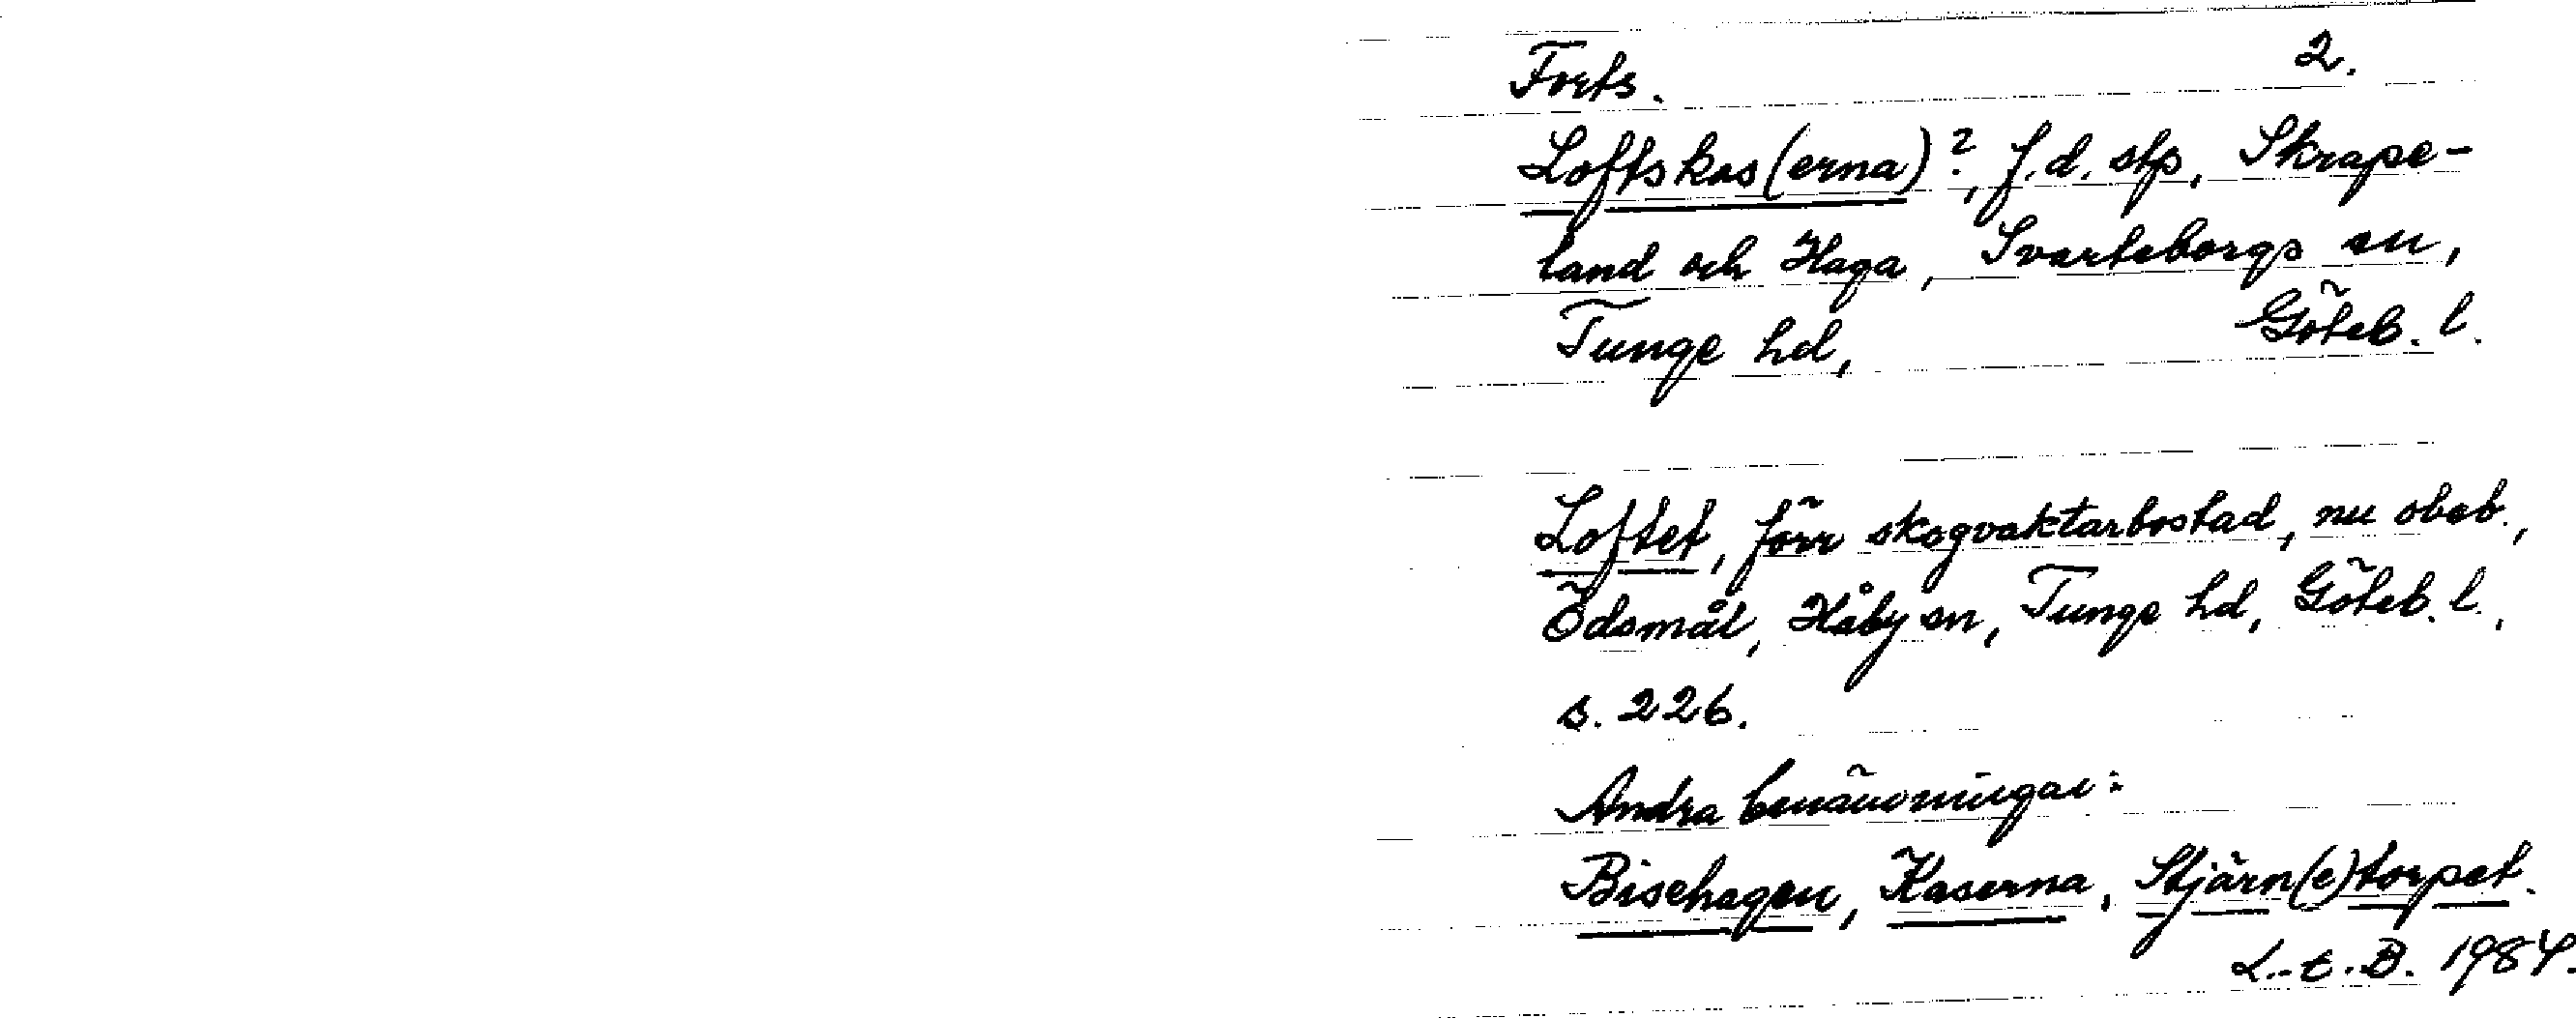 Forts. 2.
Loftskas(erna)?, f.d. stp, Skrape-
land och Haga, Svarteborgs sn,
Tunge hd, Göteb. l.
Loftet, förr skogvaktarbostad, nu obeb.,
Ödsmål, Håby sn, Tunge hd, Göteb. l.,
s. 226.
Andra benämningar:
Bisehagen, Kaserna, Stjärn(e)torpet.
L.-t. B. 1984.